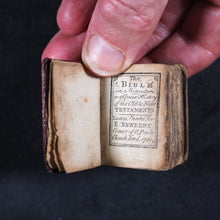 The
BIBLE
in Miniature
or a Concise History
of the Old & New
TESTAMENTS
London Printed for
E. NEWBERY
Corner of St. Pauls
Church Yard 1780